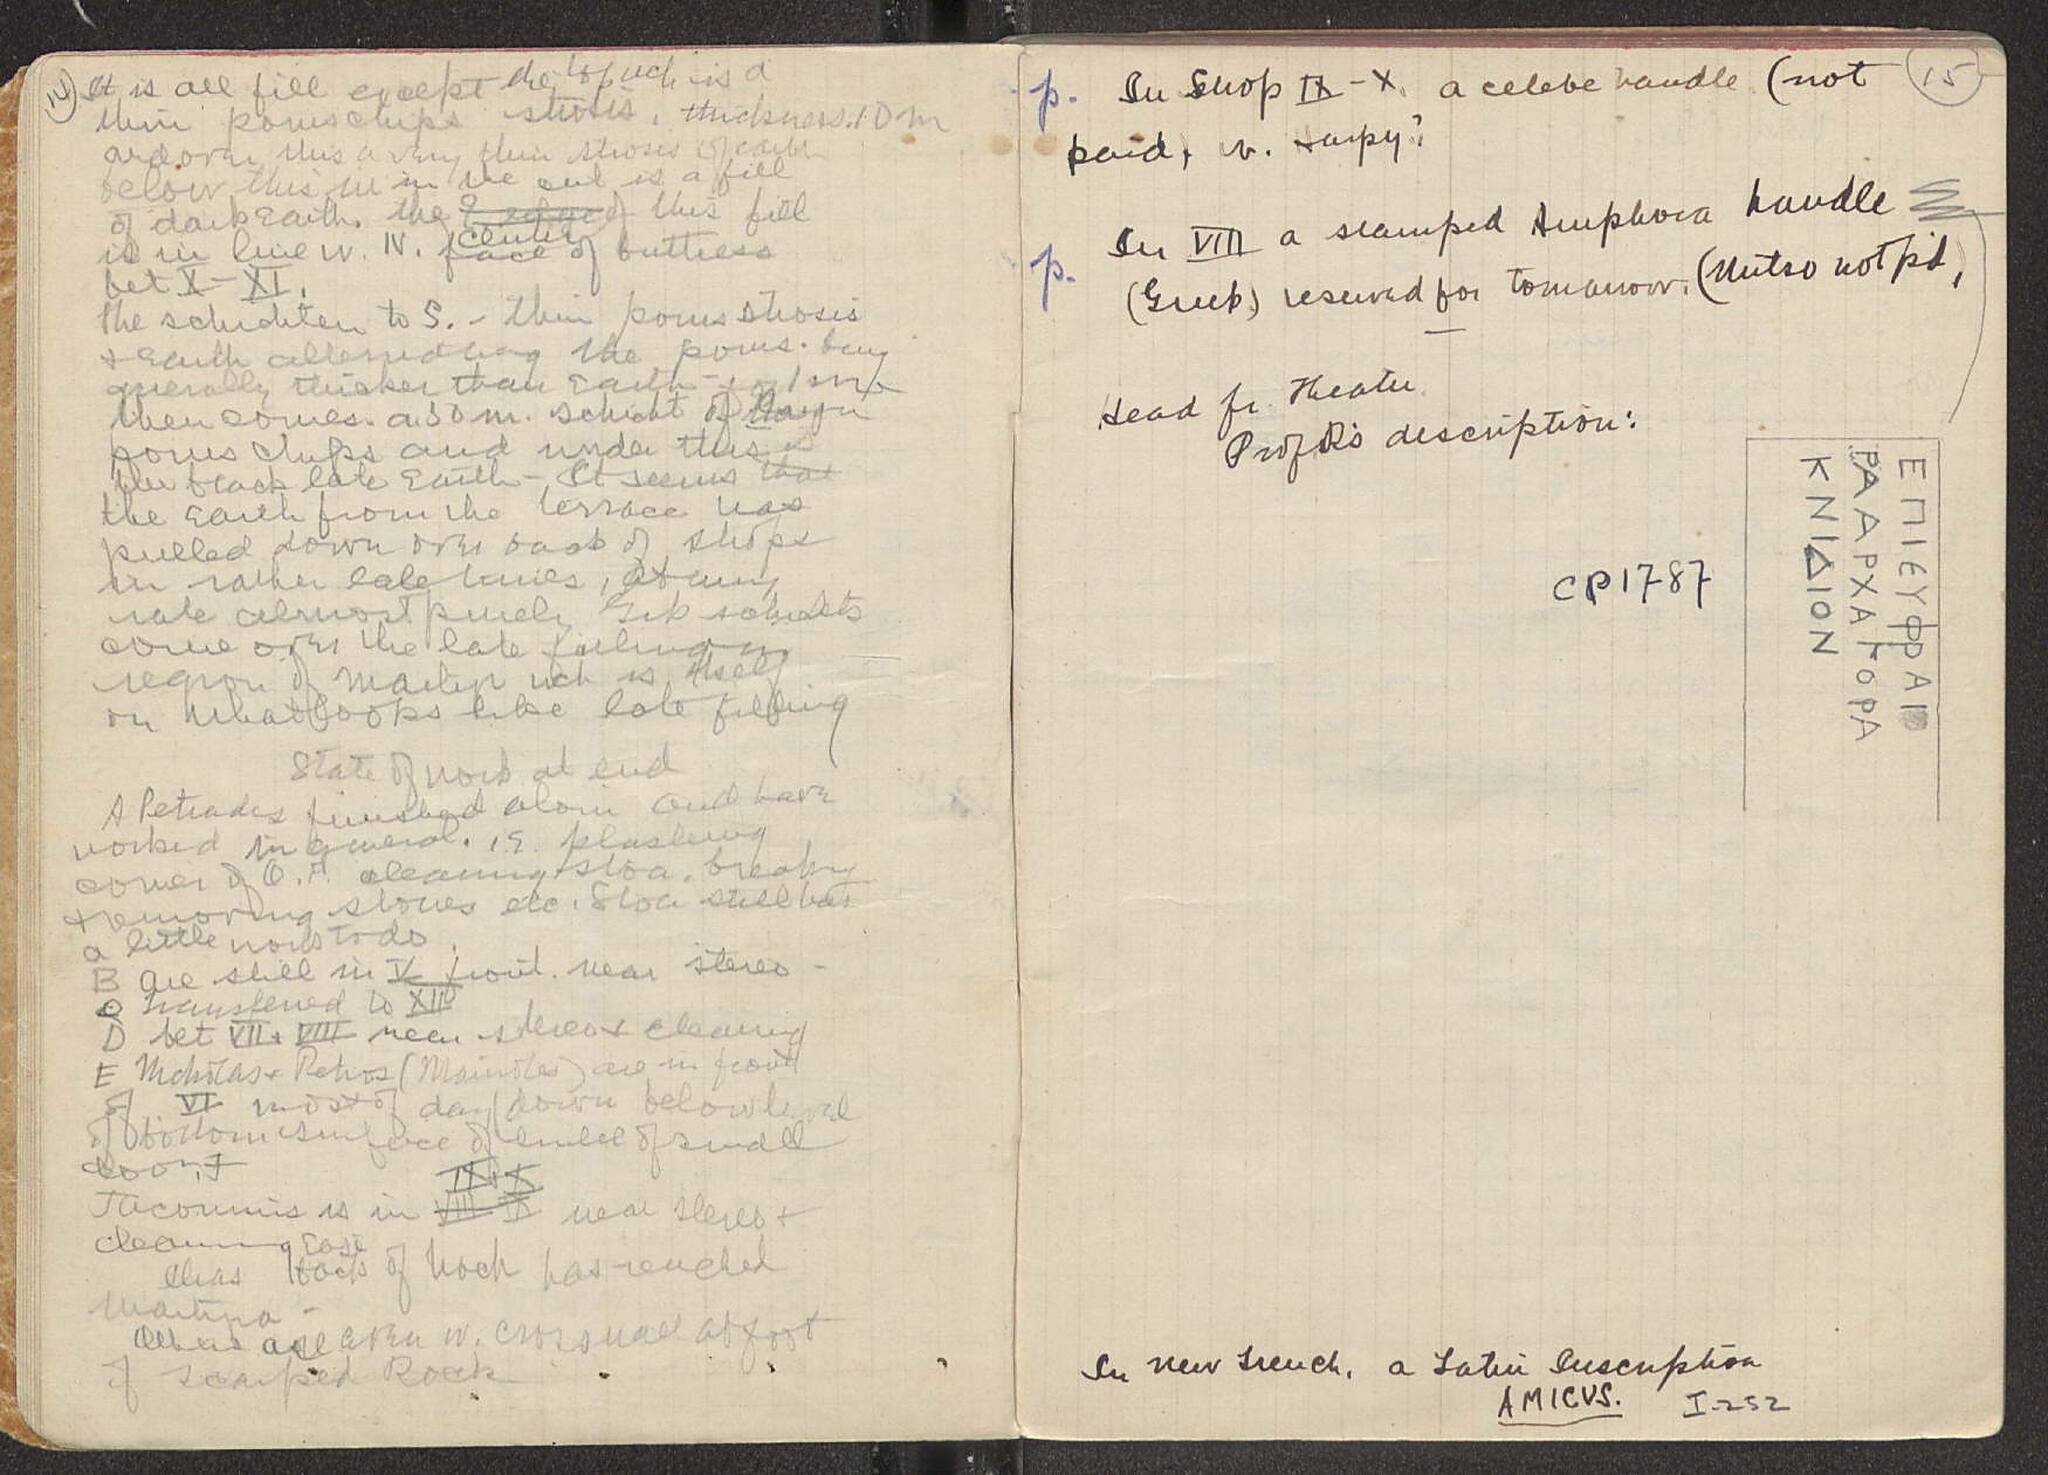 14
It is all fill except the top wch is a
thin poros chips strosis, thickness .10 m
and over this a very thin strosis of earth
below this in the cut is a fill
of dark Earth. the E edge of this fill
is in line w. N. face center of buttress
bet X - XI.
the schichten to S. - thin poros strosis
+ Earth alternating the poros. being
generally thicker than Earth
then comes a .30 m. schicht of
poros chips and under this is
the black late Earth - It seems that
the Earth from the terrace was
pulled down over back of shops
in rather late times, At any
rate almost purely Grk schichts
come over the late filling in
region of Martyn wch is itself
on what looks like late filling
State of work at end
A Petrades finished alone and have
worked in general. i.e. plastering
corner of O.F. cleaning stoa, breaking
+ removing stones etc. Stoa still has
a little work to do.
B are still in V front. near stereo -
C transferred to XII
D bet VII + VIII near stereo + cleaning
E Nicholas + Petros (Mainotes) are in front
of VI most of day down below level
of bottom surface of lintel of small
door.
IX + X
is in VIII IX near stereo +
cleaning East
back of has reached
Martyn -
Others are even w. cross wall at foot
of scarped Rock
15
p. In Shop IX - X. a celebe handle (not
paid,
p. In VIII a stamped Amphora handle
(Greek) reserved for tomorrow. (Mitso not p'd,
Head fr. Theater.
Prof R's description:
ΕΠΙΕΥΦΡΑΙ
ΡΑΔΑΡΧΑΓΟΡΑ
ΚΝΙΔΙΟΝ
CP1787
In new trench, a Latin Inscription
AMICVS. I-252